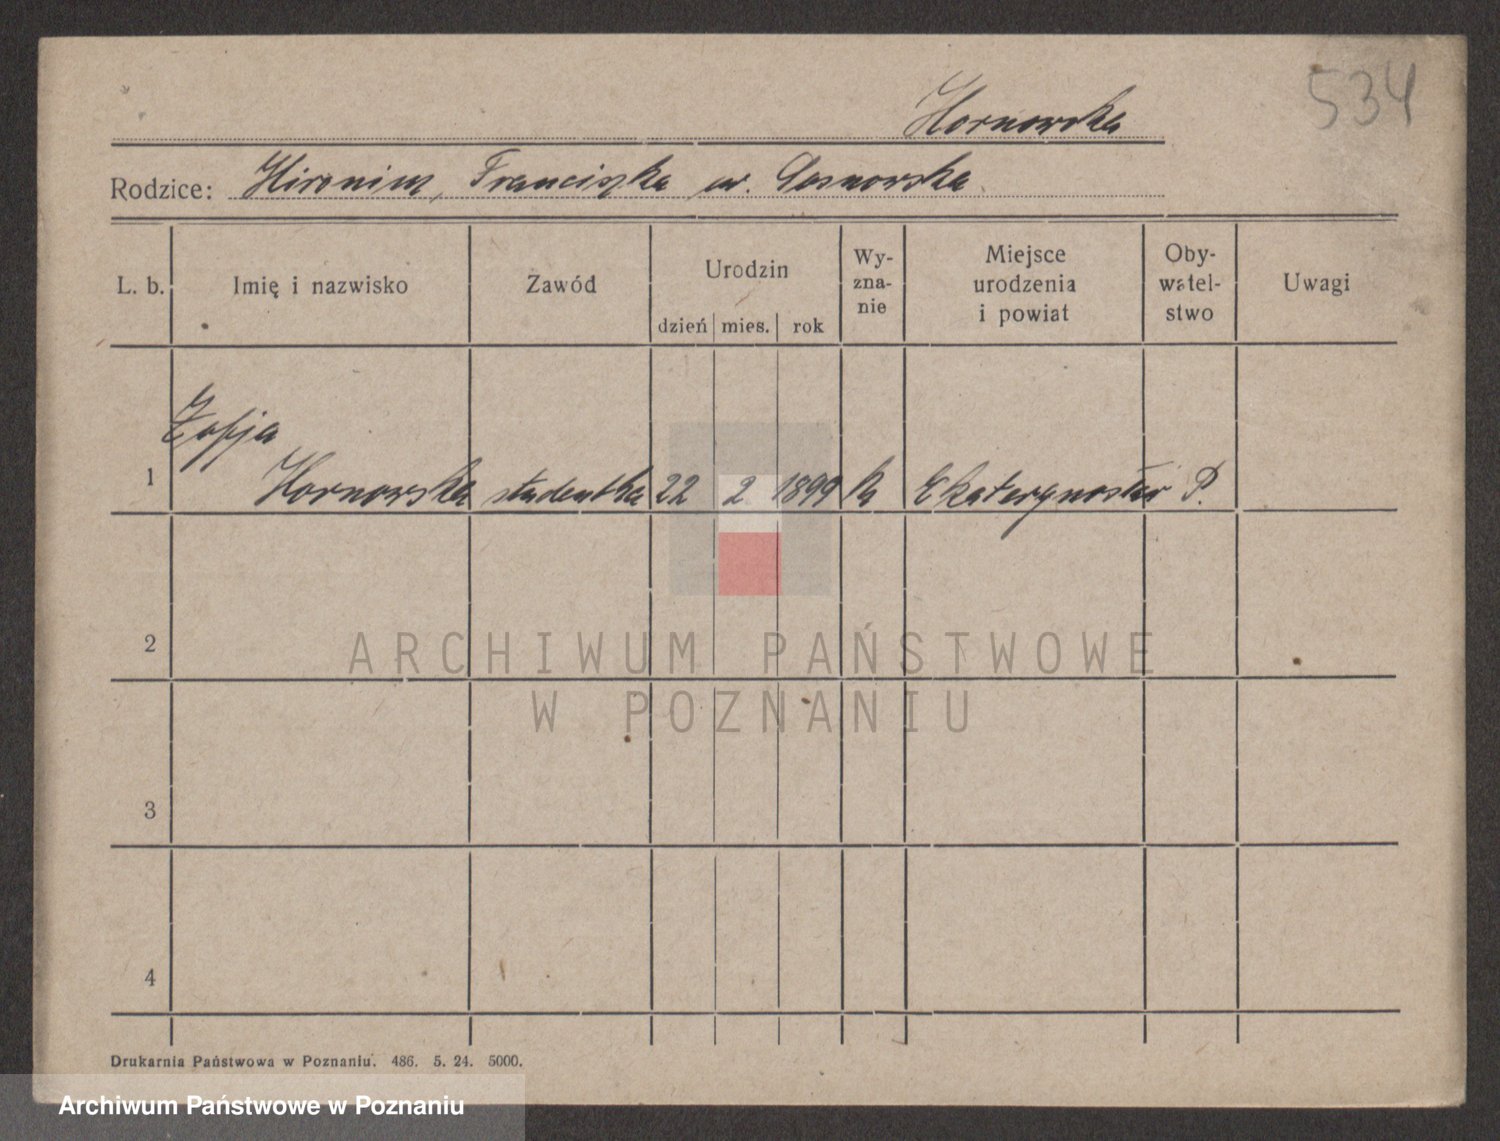 534
Hornowska
Rodzice: Hironim, Franciszka ur. Sosnowska
L. b. Imię i nazwisko Zawód Urodzin Wy-zna-nie Miejsce urodzenia i powiat Oby-watel-stwo Uwagi
dzień mies. rok
Zofja
1 Hornowska studentka 22 2 1899 k Ekaterynosław P.
2
ARCHIWUM PAŃSTWOWE
W POZNANIU
3
4
Drukarnia Państwowa w Poznaniu. 486. 5. 24. 5000.
Archiwum Państwowe w Poznaniu